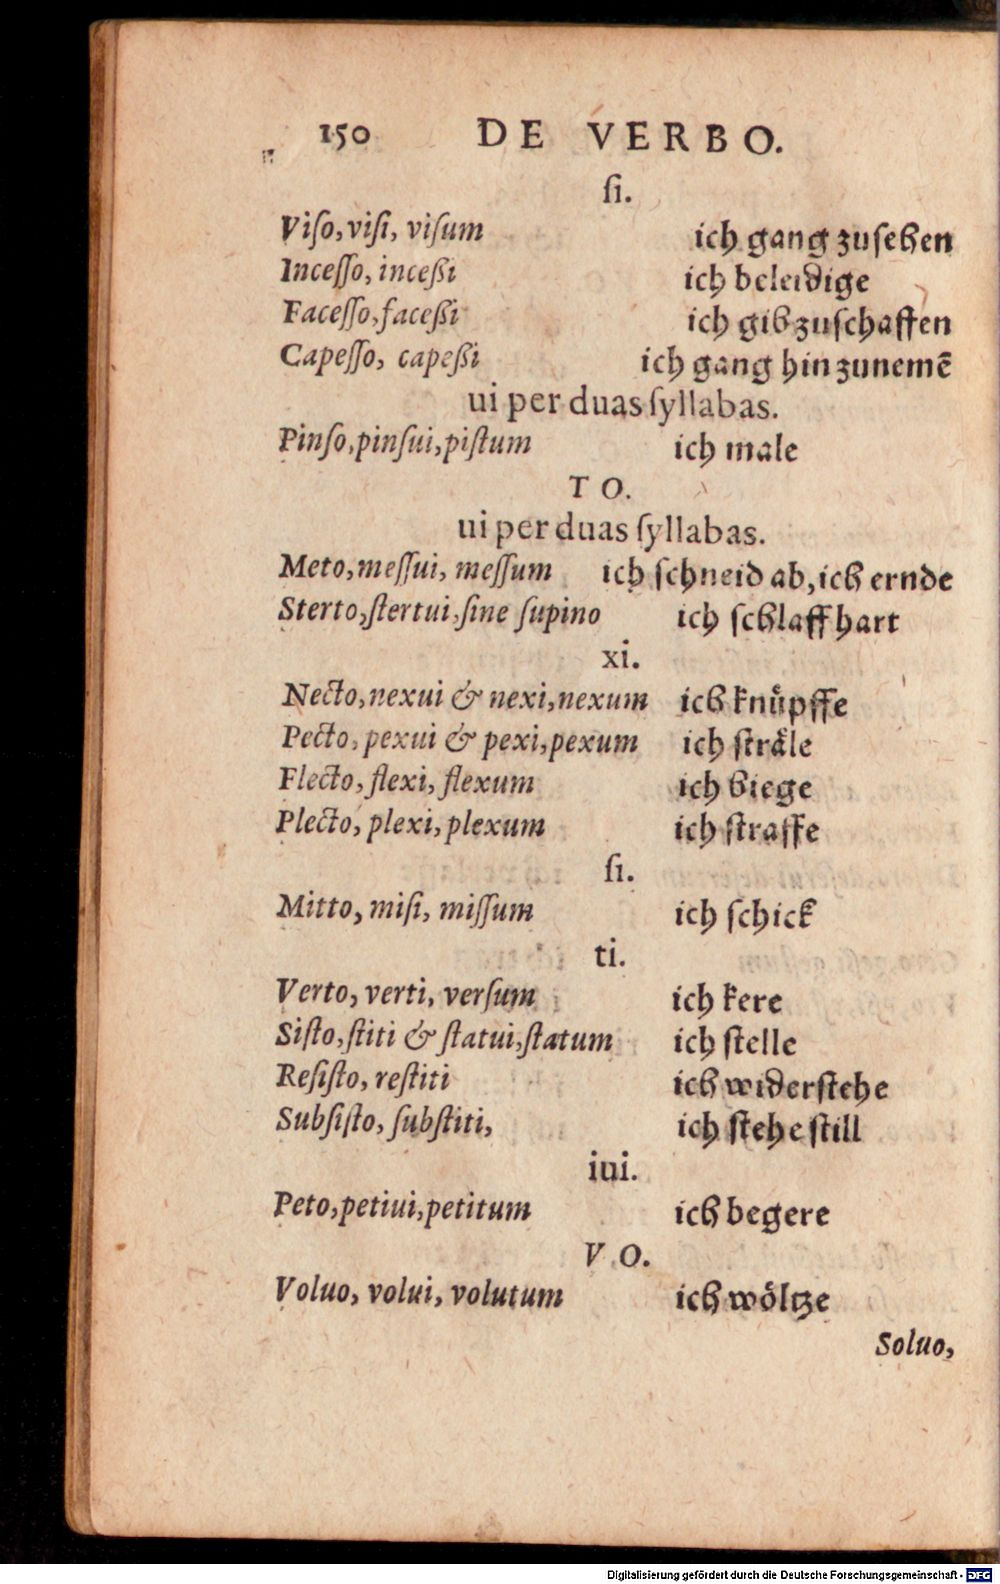 150 DE VERBO.
ſi.
Viſo, viſi, viſum ich gang zuſehen
Inceſſo, inceßi ich beleidige
Faceſſo, faceßi ich gib zuſchaffen
Capeſſo, capeßi ich gang hin zunemē
ui per duas ſyllabas.
Pinſo, pinſui, piſtum ich male
TO.
ui per duas ſyllabas.
Meto, meſſui, meſſum ich ſchneid ab, ich ernde
Sterto, ſtertui, ſine ſupino ich ſchlaff hart
xi.
Necto, nexui & nexi, nexum ich knuͤpffe
Pecto, pexui & pexi, pexum ich ſtraͤle
Flecto, flexi, flexum ich biege
Plecto, plexi, plexum ich ſtraffe
ſi.
Mitto, miſi, miſſum ich ſchick
ti.
Verto, verti, verſum ich kere
Siſto, ſtiti & ſtatui, ſtatum ich ſtelle
Reſiſto, reſtiti ich widerſtehe
Subſiſto, ſubſtiti, ich ſtehe ſtill
iui.
Peto, petiui, petitum ich begere
VO.
Voluo, volui, volutum ich woͤltze
Soluo,
Digitalisierung gefördert durch die Deutsche Forschungsgemeinschaft - DFG